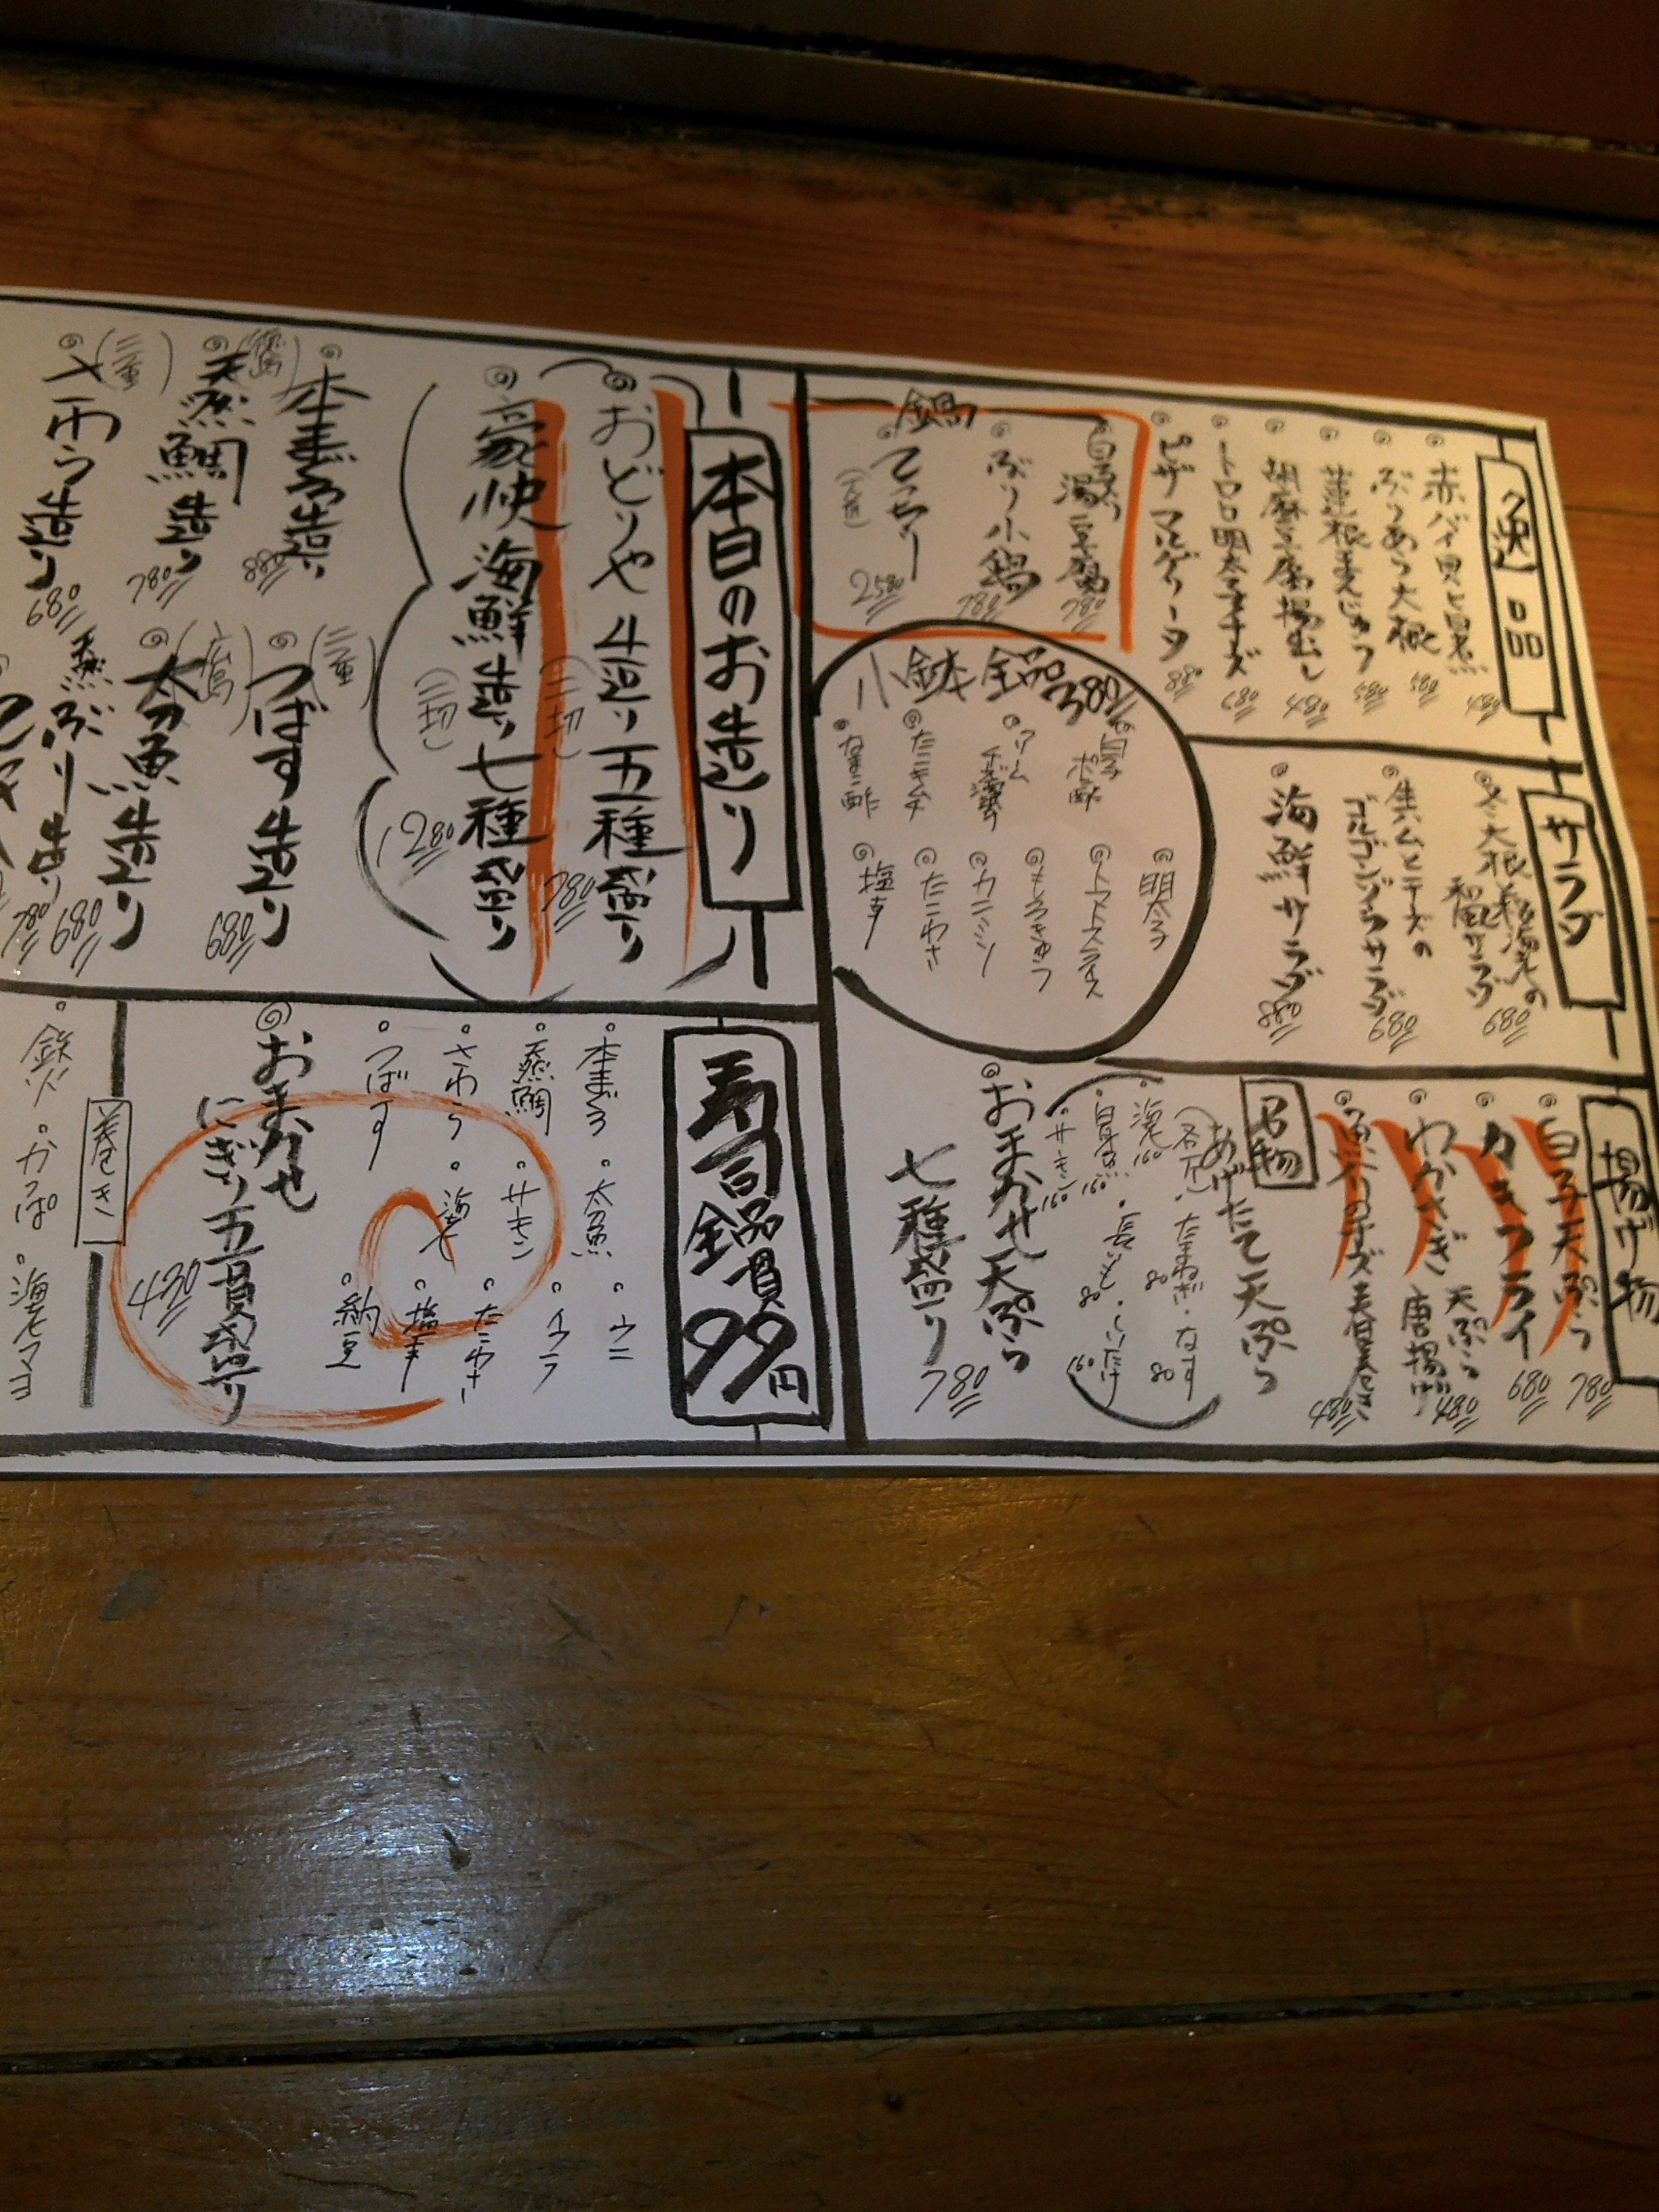 逸品
赤バイ貝と旨煮
480
ぶりあら大根
580
蓮根まんじゅう
580
胡麻豆腐揚出し
480
トロロ明太チーズ
680
ピザマルゲリータ
880
鍋
白子湯豆腐
780
ぶり小鍋
780
てっちり
2580
サラダ
和風サラダ
680
生ハムとチーズの
ゴルゴンゾーラサラダ
680
海鮮サラダ
880
小鉢全品380
白子ポン酢
クリームチーズ
たこキムチ
なまこ酢
明太子
トマトスライス
もろきゅう
カニミソ
たこわさ
塩辛
揚げ物
白子天ぷら
780
カキフライ
680
わかさぎ
天ぷら
唐揚げ
480
チーズ春巻き
480
名物
あげたて天ぷら
海老160
たまねぎ・なす
80
長いも
80
しいたけ
160
サーモン160
おまかせ天ぷら
七種盛り
780
本日のお造り
おどりや 4造り五種盛り
(二切)
780
豪快海鮮造り七種盛り
(二切)
1280
本まぐろ造り
880
天然鯛造り
(徳島)
780
さわら造り
(三重)
680
つばす造り
(三重)
680
太刀魚造り
(広島)
680
天然ぶり造り
780
寿司全品一貫99円
本まぐろ
太刀魚
ウニ
天然鯛
サーモン
イクラ
さわら
海老
たこわさ
つばす
塩辛
納豆
おまかせ
にぎり五貫盛り
430
巻き
鉄火
かっぱ
海老マヨ